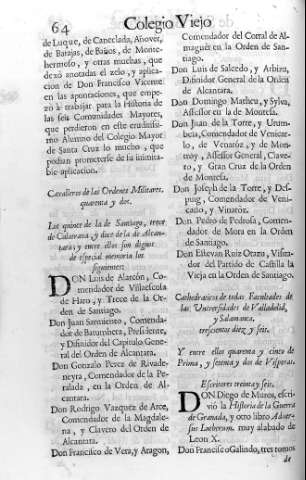 64
Colegio Viejo
de Luque, de Caneclada, Añover,
de Barajas, de Baños, de Monte-
hermoso, y otras muchas, que
dexò anotadas el zelo, y aplica-
cion de Don Francisco Vicente
en las apuntaciones, que empe-
zò à trabajar para la Historia de
las seis Comunidades Mayores,
que perdieron en este eruditissi-
mo Alumno del Colegio Mayor
de Santa Cruz lo mucho, que
podian prometerse de su inimita-
ble aplicacion.
Cavalleros de las Ordenes Militares,
quarenta y dos.
Los quince de la de Santiago, trece
de Calatrava, y doce de la de Alcan-
tara; y entre ellos son dignos
de especial memoria los
siguientes:
DON Luis de Alarcòn, Co-
mendador de Villaescola
de Haro, y Trece de la Or-
den de Santiago.
Don Juan Sarmiento, Comenda-
dor de Batumbera, Presidente,
y Difinidor del Capitulo Gene-
ral del Orden de Alcantara.
Don Gonzalo Perez de Rivade-
neyra, Comendador de la Pe-
raleda, en la Orden de Al-
cantara.
Don Rodrigo Vazquez de Arce,
Comendador de la Magdale-
na, y Clavero del Orden de
Alcantara.
Don Francisco de Vera, y Aragon,
Comendador del Corral de Al-
maguèr en la Orden de San-
tiago.
Don Luis de Salcedo, y Arbizu,
Difinidor General de la Orden
de Alcantara.
Don Domingo Matheu, y Sylva,
Assessor en la de Montesa.
Don Juan de la Torre, y Urum-
bela, Comendador de Venicar-
lo, de Venaròz, y de Mon-
roy, Assessor General, Clave-
ro, y Gran Cruz de la Orden
de Montesa.
Don Joseph de la Torre, y Des-
pug, Comendador de Veni-
cazlo, y Vinaròz.
Don Pedro de Pedrosa, Comen-
dador de Mora en la Orden
de Santiago.
Don Estevan Ruiz Orazo, Visita-
dor del Partido de Castilla la
Vieja en la Orden de Santiago.
Cathedraticos de todas Facultades de
las Universidades de Valladolid,
y Salamanca,
trescientos diez y seis.
Y entre ellos quarenta y cinco de
Prima, y setenta y dos de Visperas.
Escritores treinta y seis.
DON Diego de Muros, escri-
viò la Historia de la Guerra
de Granada, y otro libro Adver-
sus Lutherum, muy alabado de
Leon X.
Don Francisco Galindo, tres tomos
de